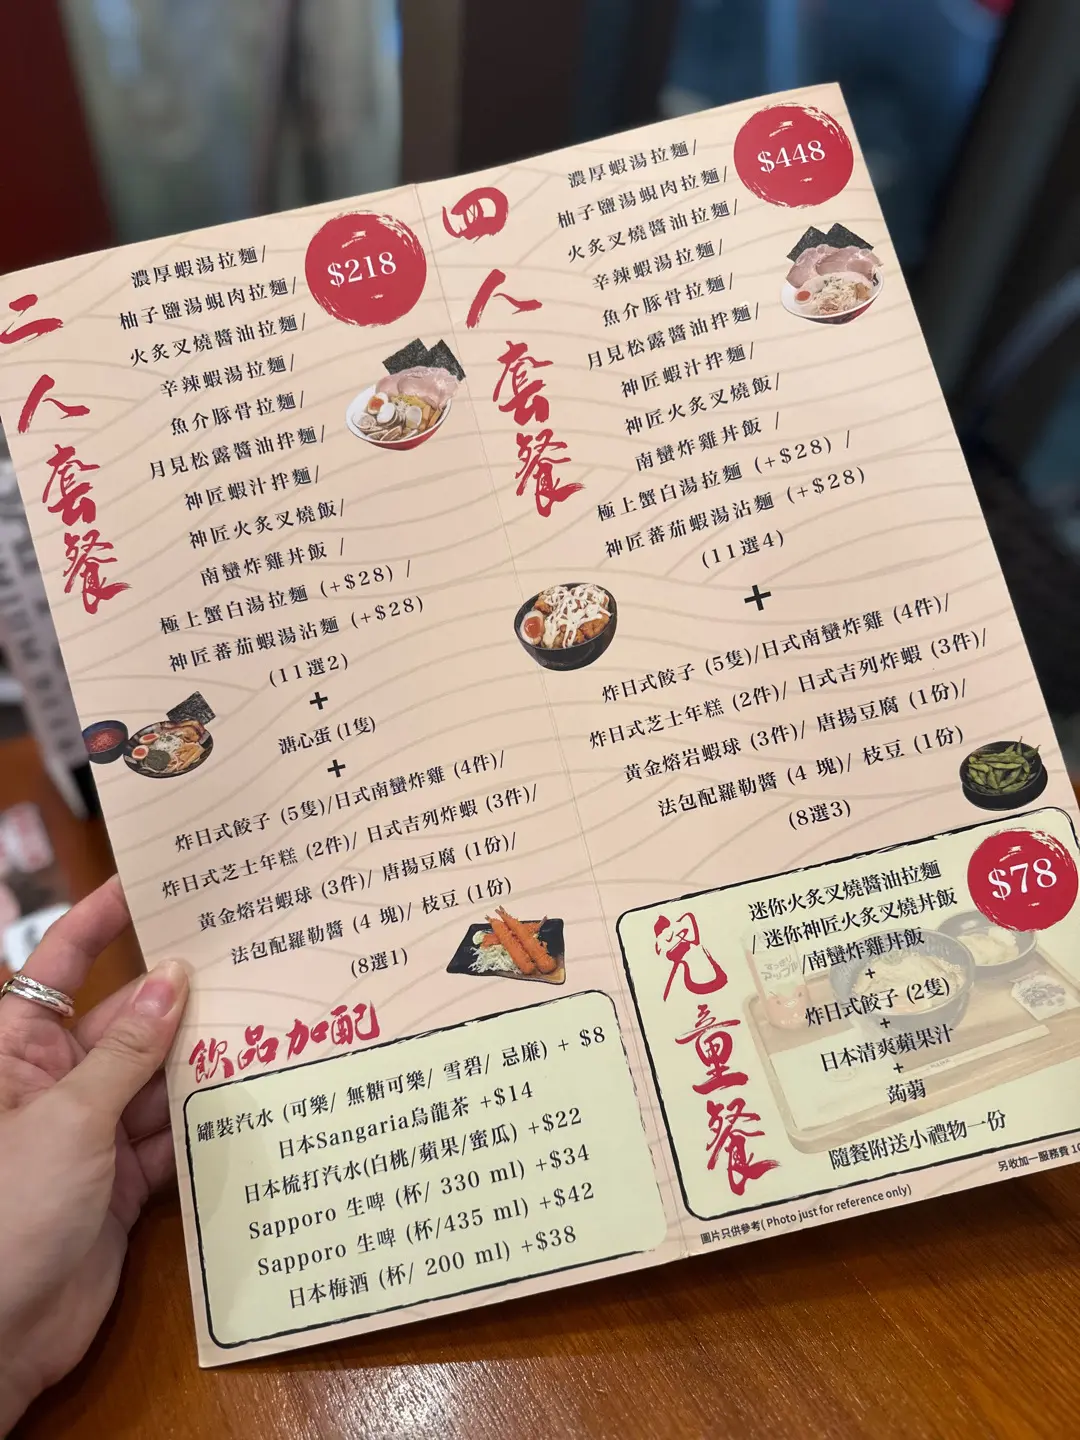 二人套餐
$218
濃厚蝦湯拉麵/
柚子鹽湯蜆肉拉麵/
火炙叉燒醬油拉麵/
辛辣蝦湯拉麵/
魚介豚骨拉麵/
月見松露醬油拌麵/
神匠蝦汁拌麵/
神匠火炙叉燒飯/
南蠻炸雞丼飯 /
極上蟹白湯拉麵 (+$28) /
神匠蕃茄蝦湯沾麵 (+$28)
(11選2)
+
溏心蛋 (1隻)
+
炸日式餃子 (5隻)/日式南蠻炸雞 (4件)/
炸日式芝士年糕 (2件)/ 日式吉列炸蝦 (3件)/
黃金熔岩蝦球 (3件)/ 唐揚豆腐 (1份)/
法包配羅勒醬 (4 塊)/ 枝豆 (1份)
(8選1)
飲品加配
罐裝汽水 (可樂/ 無糖可樂/ 雪碧/ 忌廉) + $8
日本Sangaria烏龍茶 +$14
日本梳打汽水(白桃/蘋果/蜜瓜) +$22
Sapporo 生啤 (杯/ 330 ml) +$34
Sapporo 生啤 (杯/435 ml) +$42
日本梅酒 (杯/ 200 ml) +$38
四人套餐
$448
濃厚蝦湯拉麵/
柚子鹽湯蜆肉拉麵/
火炙叉燒醬油拉麵/
辛辣蝦湯拉麵/
魚介豚骨拉麵/
月見松露醬油拌麵/
神匠蝦汁拌麵/
神匠火炙叉燒飯/
南蠻炸雞丼飯 /
極上蟹白湯拉麵 (+$28) /
神匠蕃茄蝦湯沾麵 (+$28)
(11選4)
+
炸日式餃子 (5隻)/日式南蠻炸雞 (4件)/
炸日式芝士年糕 (2件)/ 日式吉列炸蝦 (3件)/
黃金熔岩蝦球 (3件)/ 唐揚豆腐 (1份)/
法包配羅勒醬 (4 塊)/ 枝豆 (1份)
(8選3)
兒童餐
$78
迷你火炙叉燒醬油拉麵
/ 迷你神匠火炙叉燒丼飯
/南蠻炸雞丼飯
+
炸日式餃子 (2隻)
+
日本清爽蘋果汁
+
蒟蒻
隨餐附送小禮物一份
另收加一服務費
圖片只供參考( Photo just for reference only)